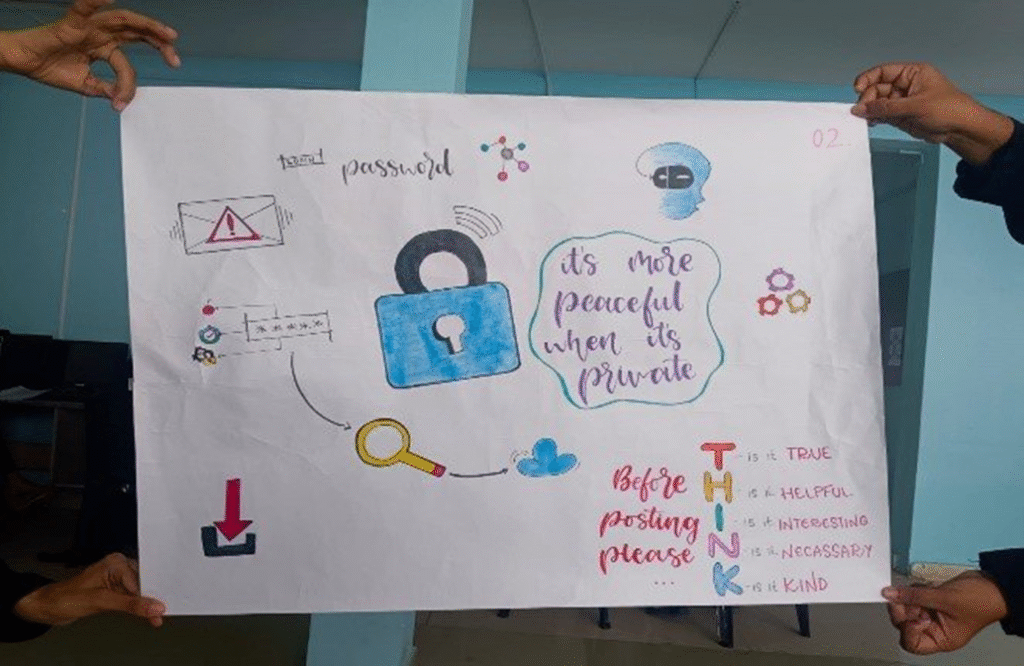 02
password
it's more
peaceful
when it's
private
* * * * *
Before
posting
please
...
T - is it TRUE
H - is it HELPFUL
I - is it INTERESTING
N - is it NECASSARY
K - is it KIND